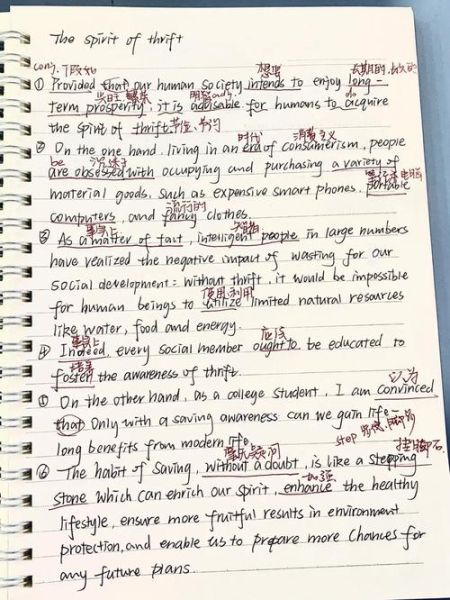 The spirit of thrift
conj. 假如 想要 长期的,长久的
① Provided that our human society intends to enjoy long-
兴旺 繁荣 明智的 adj. do
term prosperity, it is advisable for humans to acquire
the spirit of thrift 节俭,节约
时代 消费主义
② On the one hand, living in an era of consumerism, people
be 沉迷于
are obsessed with occupying and purchasing a variety of
material goods, such as expensive smart phones, portable
流行的
computers, and fancy clothes.
事实上
③ As a matter of fact, intelligent people in large numbers
have realized the negative impact of wasting for our
social development: without thrift, it would be impossible
for human beings to utilize limited natural resources
like water, food and energy.
事实上 应该
④ Indeed, every social member ought to be educated to
培养
foster the awareness of thrift.
认为
① On the other hand, as a college student, I am convinced
that Only with a saving awareness can we gain life-
long benefits from modern life.
毫无疑问 step
⑥ The habit of saving, without a doubt, is like a stepping
加强
stone which can enrich our spirit, enhance the healthy
lifestyle, ensure more fruitful results in environment
protection, and enable us to prepare more chances for
any future plans.